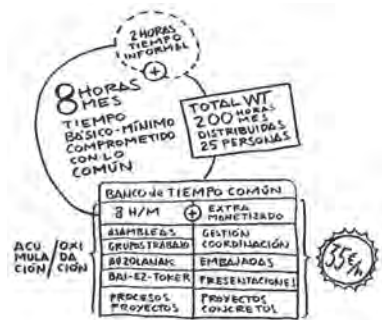 2 HORAS
TIEMPO
INFORMAL
+
8 HORAS
MES
TIEMPO
BÁSICO-MÍNIMO
COMPROMETIDO
CON LO
COMÚN
TOTAL WT
200 HORAS
MES
DISTRIBUIDAS
25 PERSONAS
BANCO de TIEMPO COMÚN
8 H/M + EXTRA
MONETIZADO
ASAMBLEAS GESTIÓN
GRUPOS TRABAJO COORDINACIÓN
AUZOLANAK EMBAJADAS
BAI-EZ-TOKER PRESENTACIONES
PROCESOS PROYECTOS
PROYECTOS CONCRETOS
ACU/OXI
MULA DA
CIÓN/CIÓN
35€/h